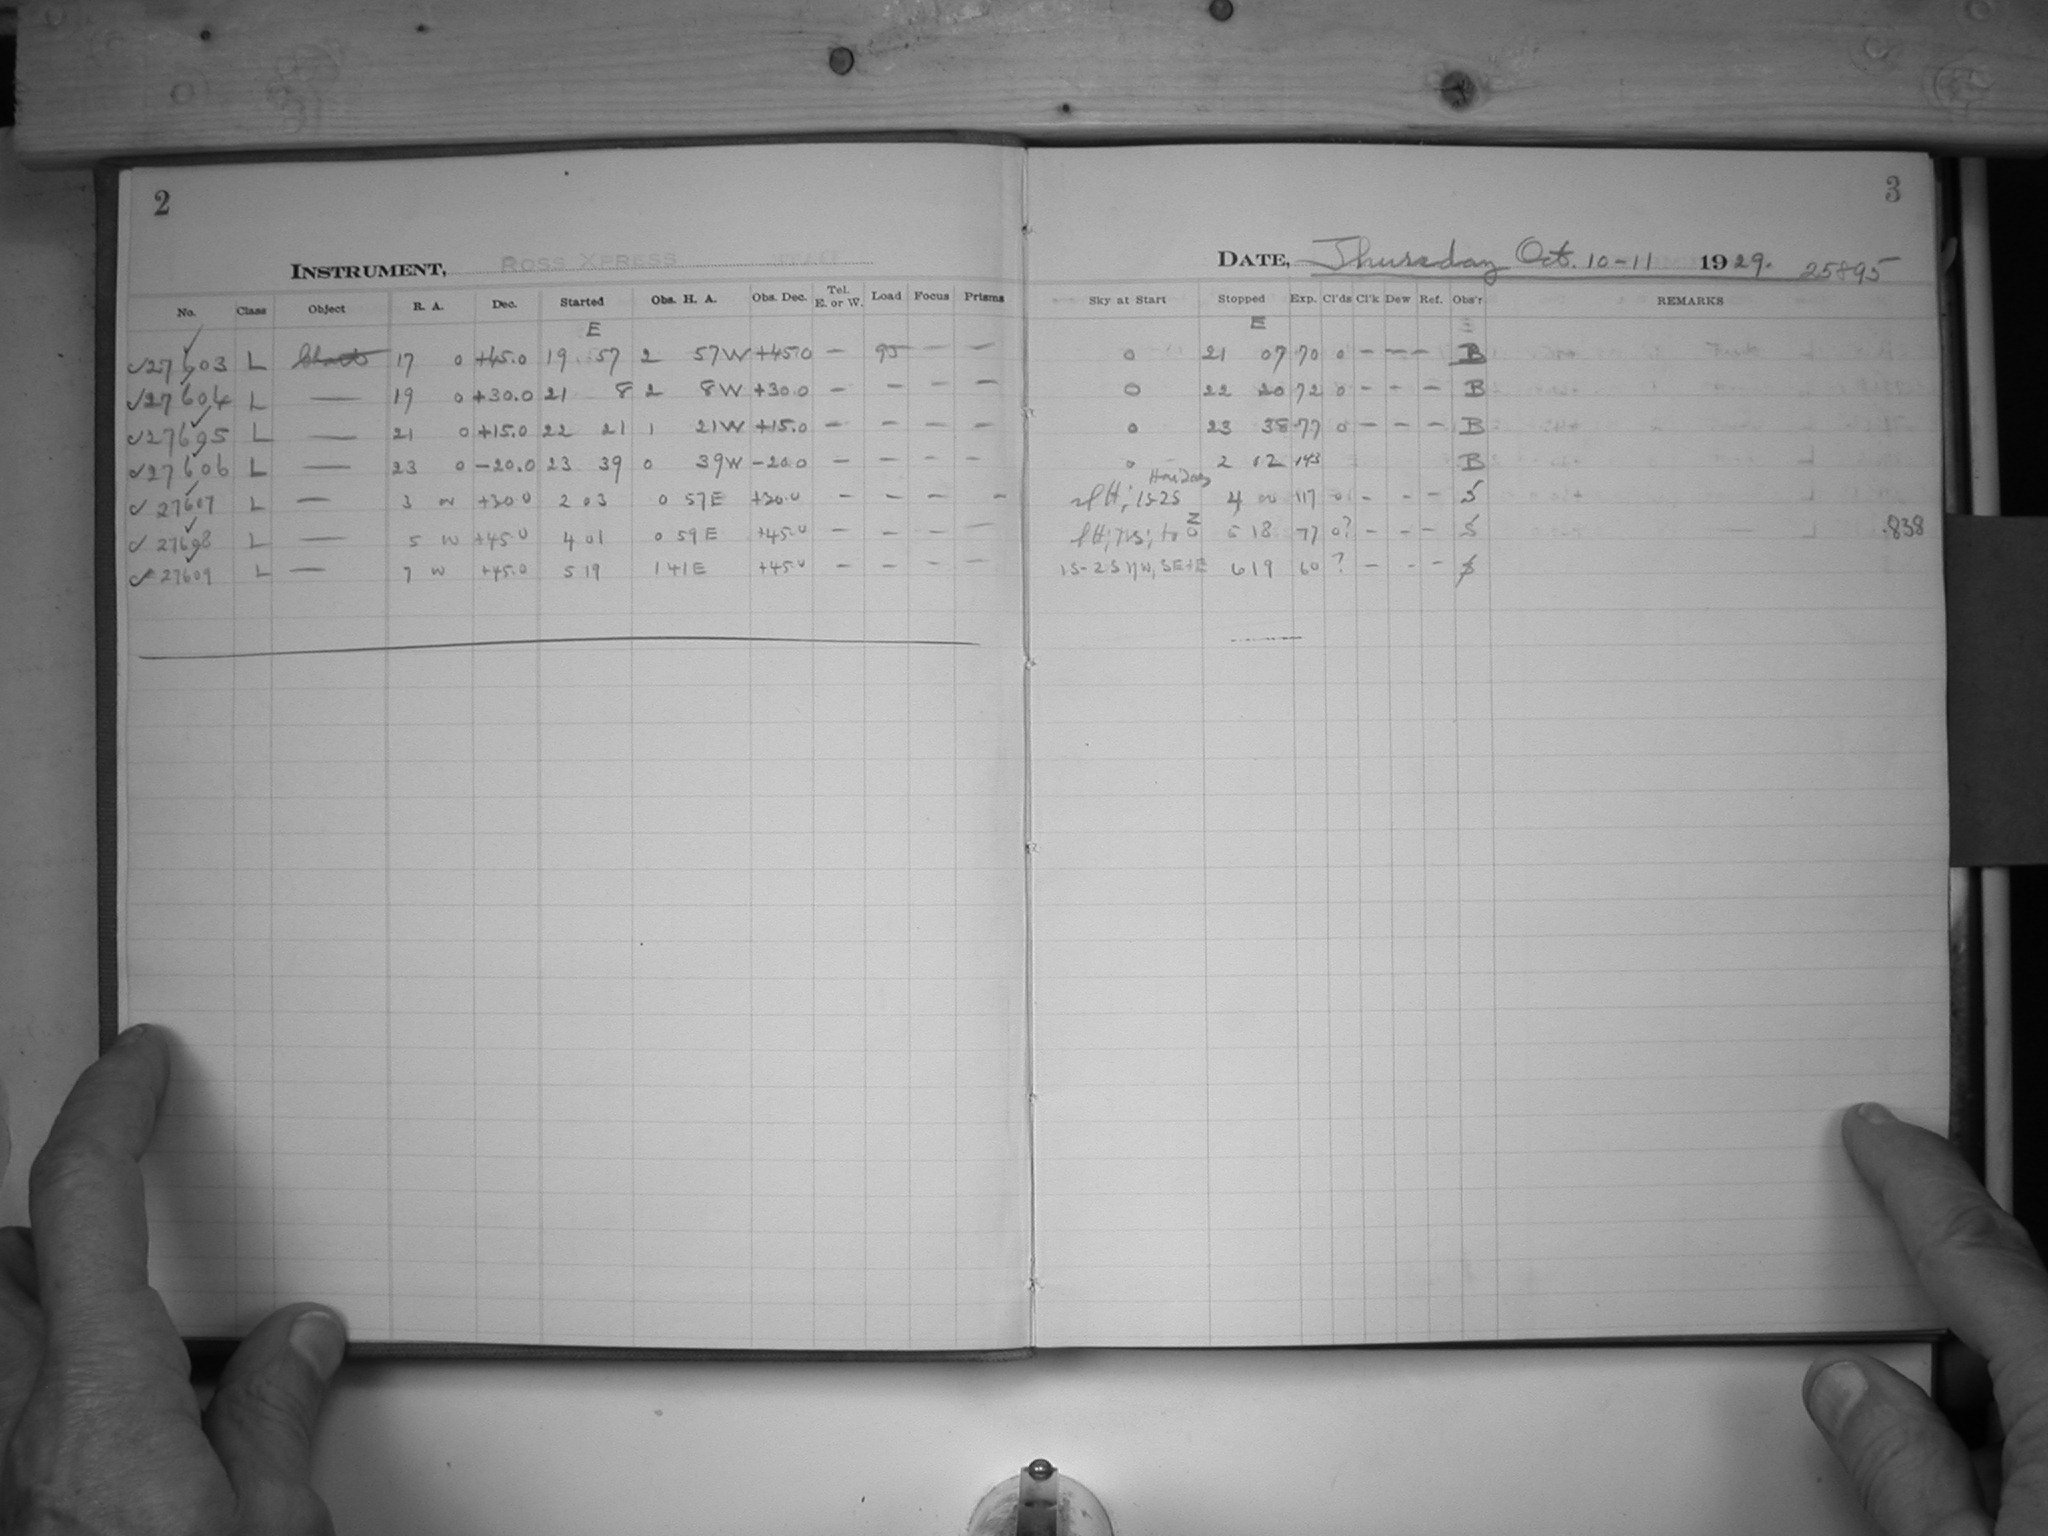 2
INSTRUMENT, ROSS XPRESS
No. Class Object R. A. Dec. Started Obs. H. A. Obs. Dec. Tel. E. or W. Load Focus Prisms
E
✓27603 L 17 0 +45.0 19 57 2 57W +45.0 — 95 — —
✓27604 L — 19 0 +30.0 21 8 2 8W +30.0 — — — —
✓27605 L — 21 0 +15.0 22 21 1 21W +15.0 — — — —
✓27606 L — 23 0 −20.0 23 39 0 39W −20.0 — — — —
✓27607 L — 3 +30.0 2 03 0 57E +30.0 — — — —
✓27608 L — 5 +45.0 4 01 0 59E +45.0 — — — —
✓27609 L — 7 +45.0 5 19 1 41E +45.0 — — — —
3
DATE, Thursday Oct. 10-11 1929. 25895
Sky at Start Stopped Exp. Cl'ds Cl'k Dew Ref. Obs'r REMARKS
E
0 21 07 70 0 — — — B
0 22 20 72 0 — — — B
0 23 38 77 0 — — — B
0 2 02 143 B
1S-2S 4 117 0 — — — S
5 18 77 0? — — — S .838
1S-2S 6 19 60 ? — — — S